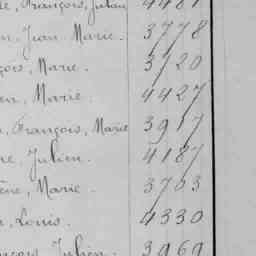 le, François, Julien 4481
n, Jean Marie. 3778
çois, Marie. 3720
en, Marie. 4427
n, François, Marie 3917
ne, Julien. 4187
ène, Marie. 3703
n, Louis. 4330
ançois, Julien. 3969